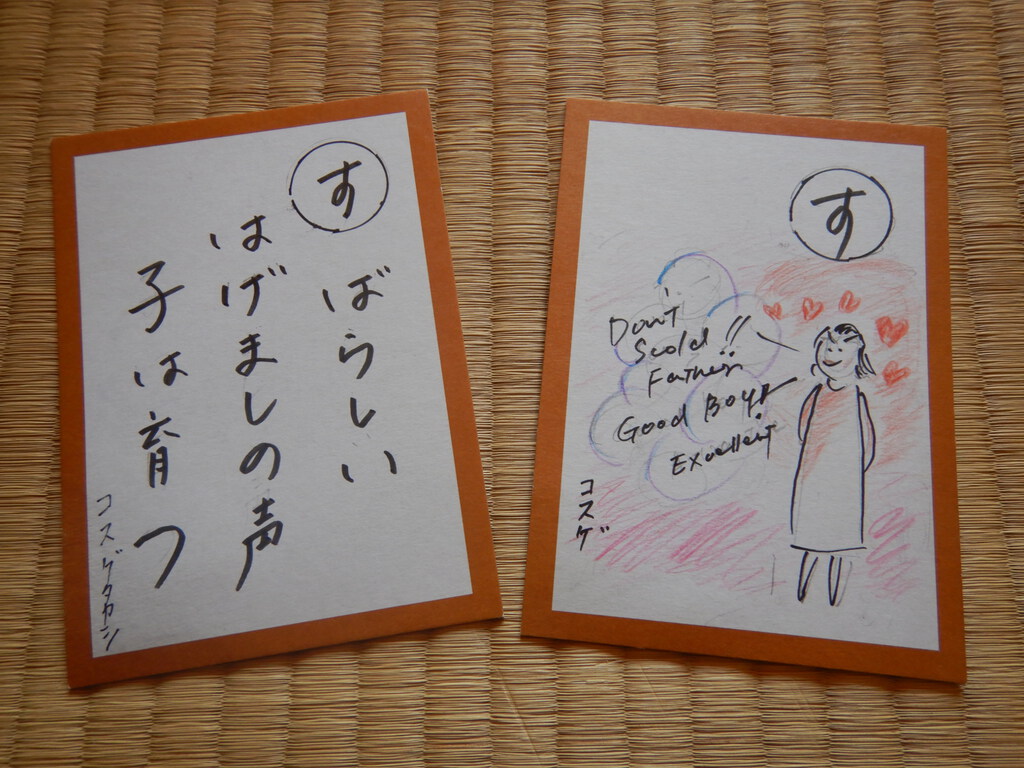 す
ばらしい
はげましの声
子は育つ
コスゲタカシ
す
Don't
Scold!!
Father
Good Boy!
Excellent
コスゲ